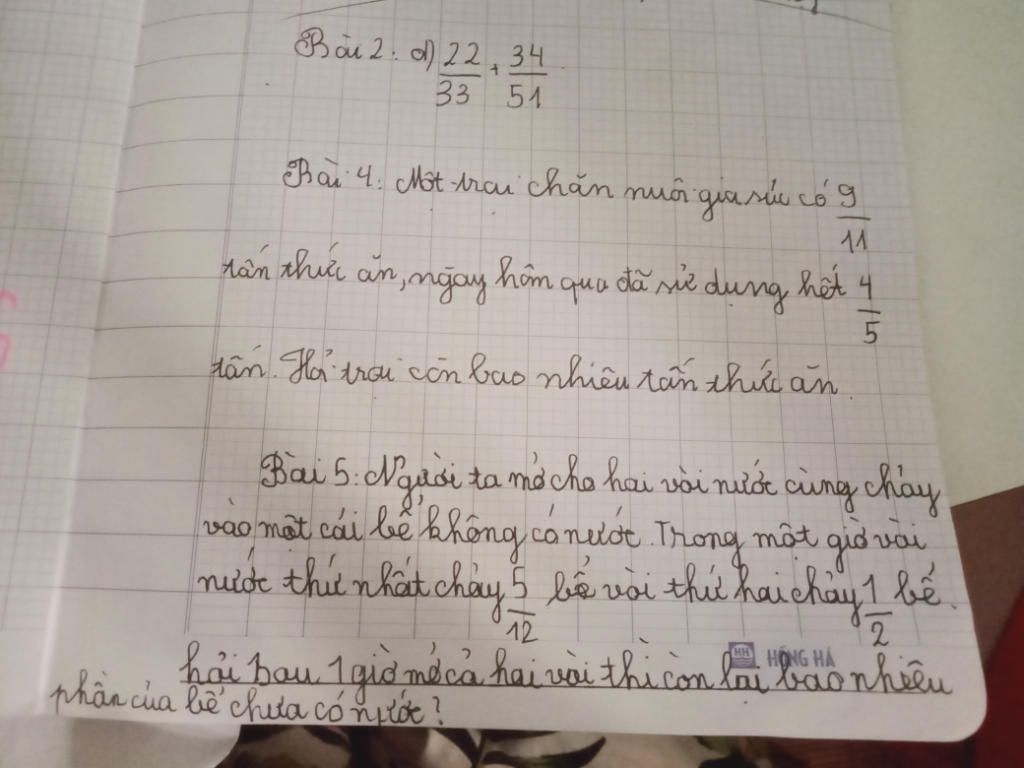 Bài 2: a) 22/33 + 34/51
Bài 4: Một trại chăn nuôi gia súc có 9/11
tấn thức ăn, ngày hôm qua đã sử dụng hết 4/5
tấn. Hỏi trại còn bao nhiêu tấn thức ăn.
Bài 5: Người ta mở cho hai vòi nước cùng chảy
vào một cái bể không có nước. Trong một giờ vòi
nước thứ nhất chảy 5/12 bể vòi thứ hai chảy 1/2 bể.
HH HỒNG HÀ
hỏi sau 1 giờ mở cả hai vòi thì còn lại bao nhiêu
phần của bể chưa có nước?